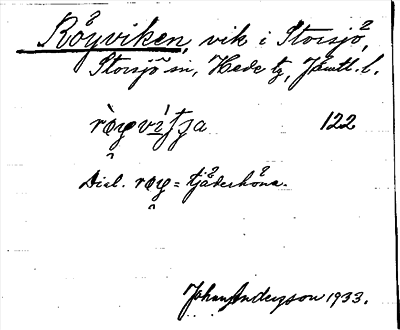 Röyviken, vik i Storsjö,
Storsjö sn, Hede tg, Jämtl. l.
122
Dial. = tjäderhöna.
Johan Anderson 1933.